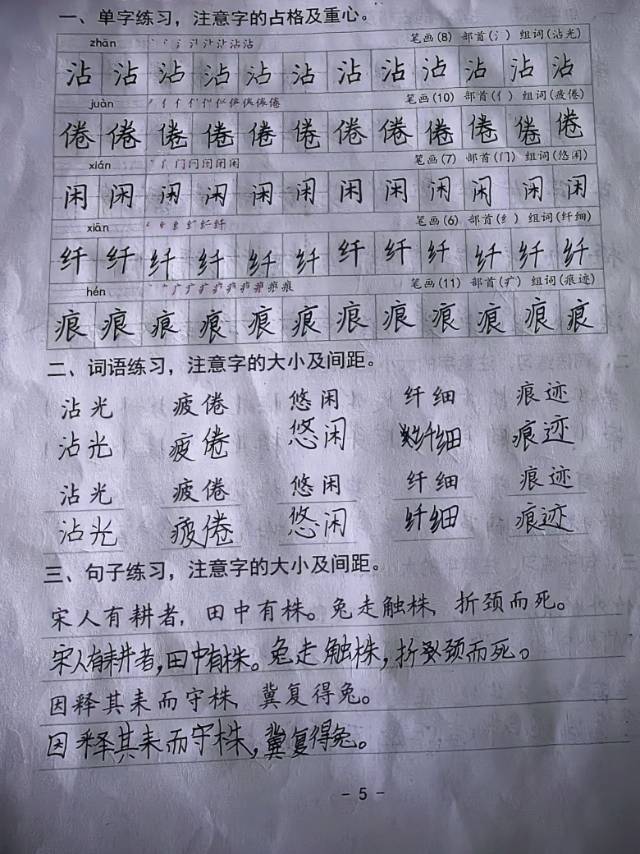 一、单字练习，注意字的占格及重心。
zhān 笔画(8) 部首(氵) 组词(沾光)
沾 沾 沾 沾 沾 沾 沾 沾 沾 沾 沾 沾
juàn 笔画(10) 部首(亻) 组词(疲倦)
倦 倦 倦 倦 倦 倦 倦 倦 倦 倦 倦 倦
xián 笔画(7) 部首(门) 组词(悠闲)
闲 闲 闲 闲 闲 闲 闲 闲 闲 闲 闲 闲
xiān 笔画(6) 部首(纟) 组词(纤细)
纤 纤 纤 纤 纤 纤 纤 纤 纤 纤 纤 纤
hén 笔画(11) 部首(疒) 组词(痕迹)
痕 痕 痕 痕 痕 痕 痕 痕 痕 痕 痕 痕
二、词语练习，注意字的大小及间距。
沾光 疲倦 悠闲 纤细 痕迹
沾光 疲倦 悠闲 纤细 痕迹
沾光 疲倦 悠闲 纤细 痕迹
沾光 疲倦 悠闲 纤细 痕迹
三、句子练习，注意字的大小及间距。
宋人有耕者，田中有株。兔走触株，折颈而死。
宋人有耕者，田中有株。兔走触株，折颈而死。
因释其耒而守株，冀复得兔。
因释其耒而守株，冀复得兔。
- 5 -